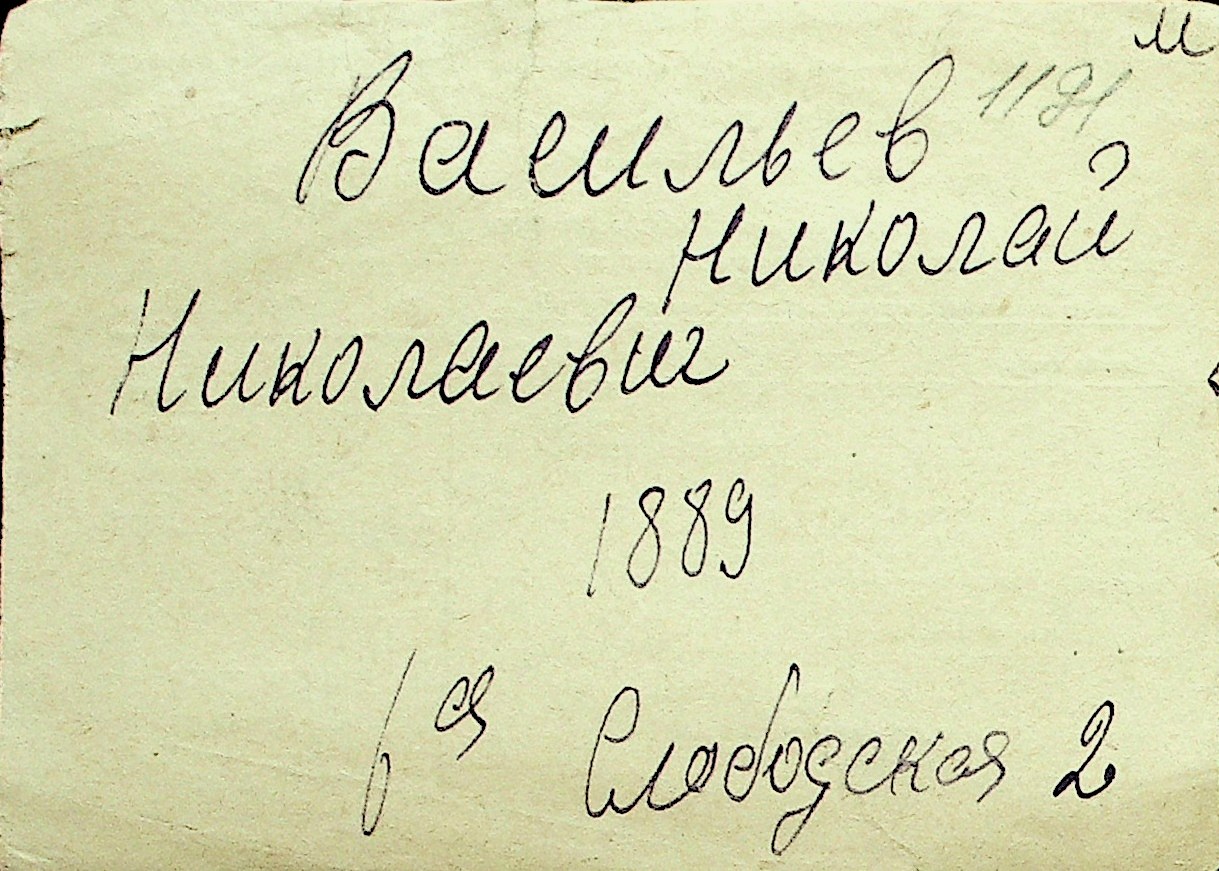 м
Васильев 1191
Николай
Николаевич
1889
1ая Слободская 2